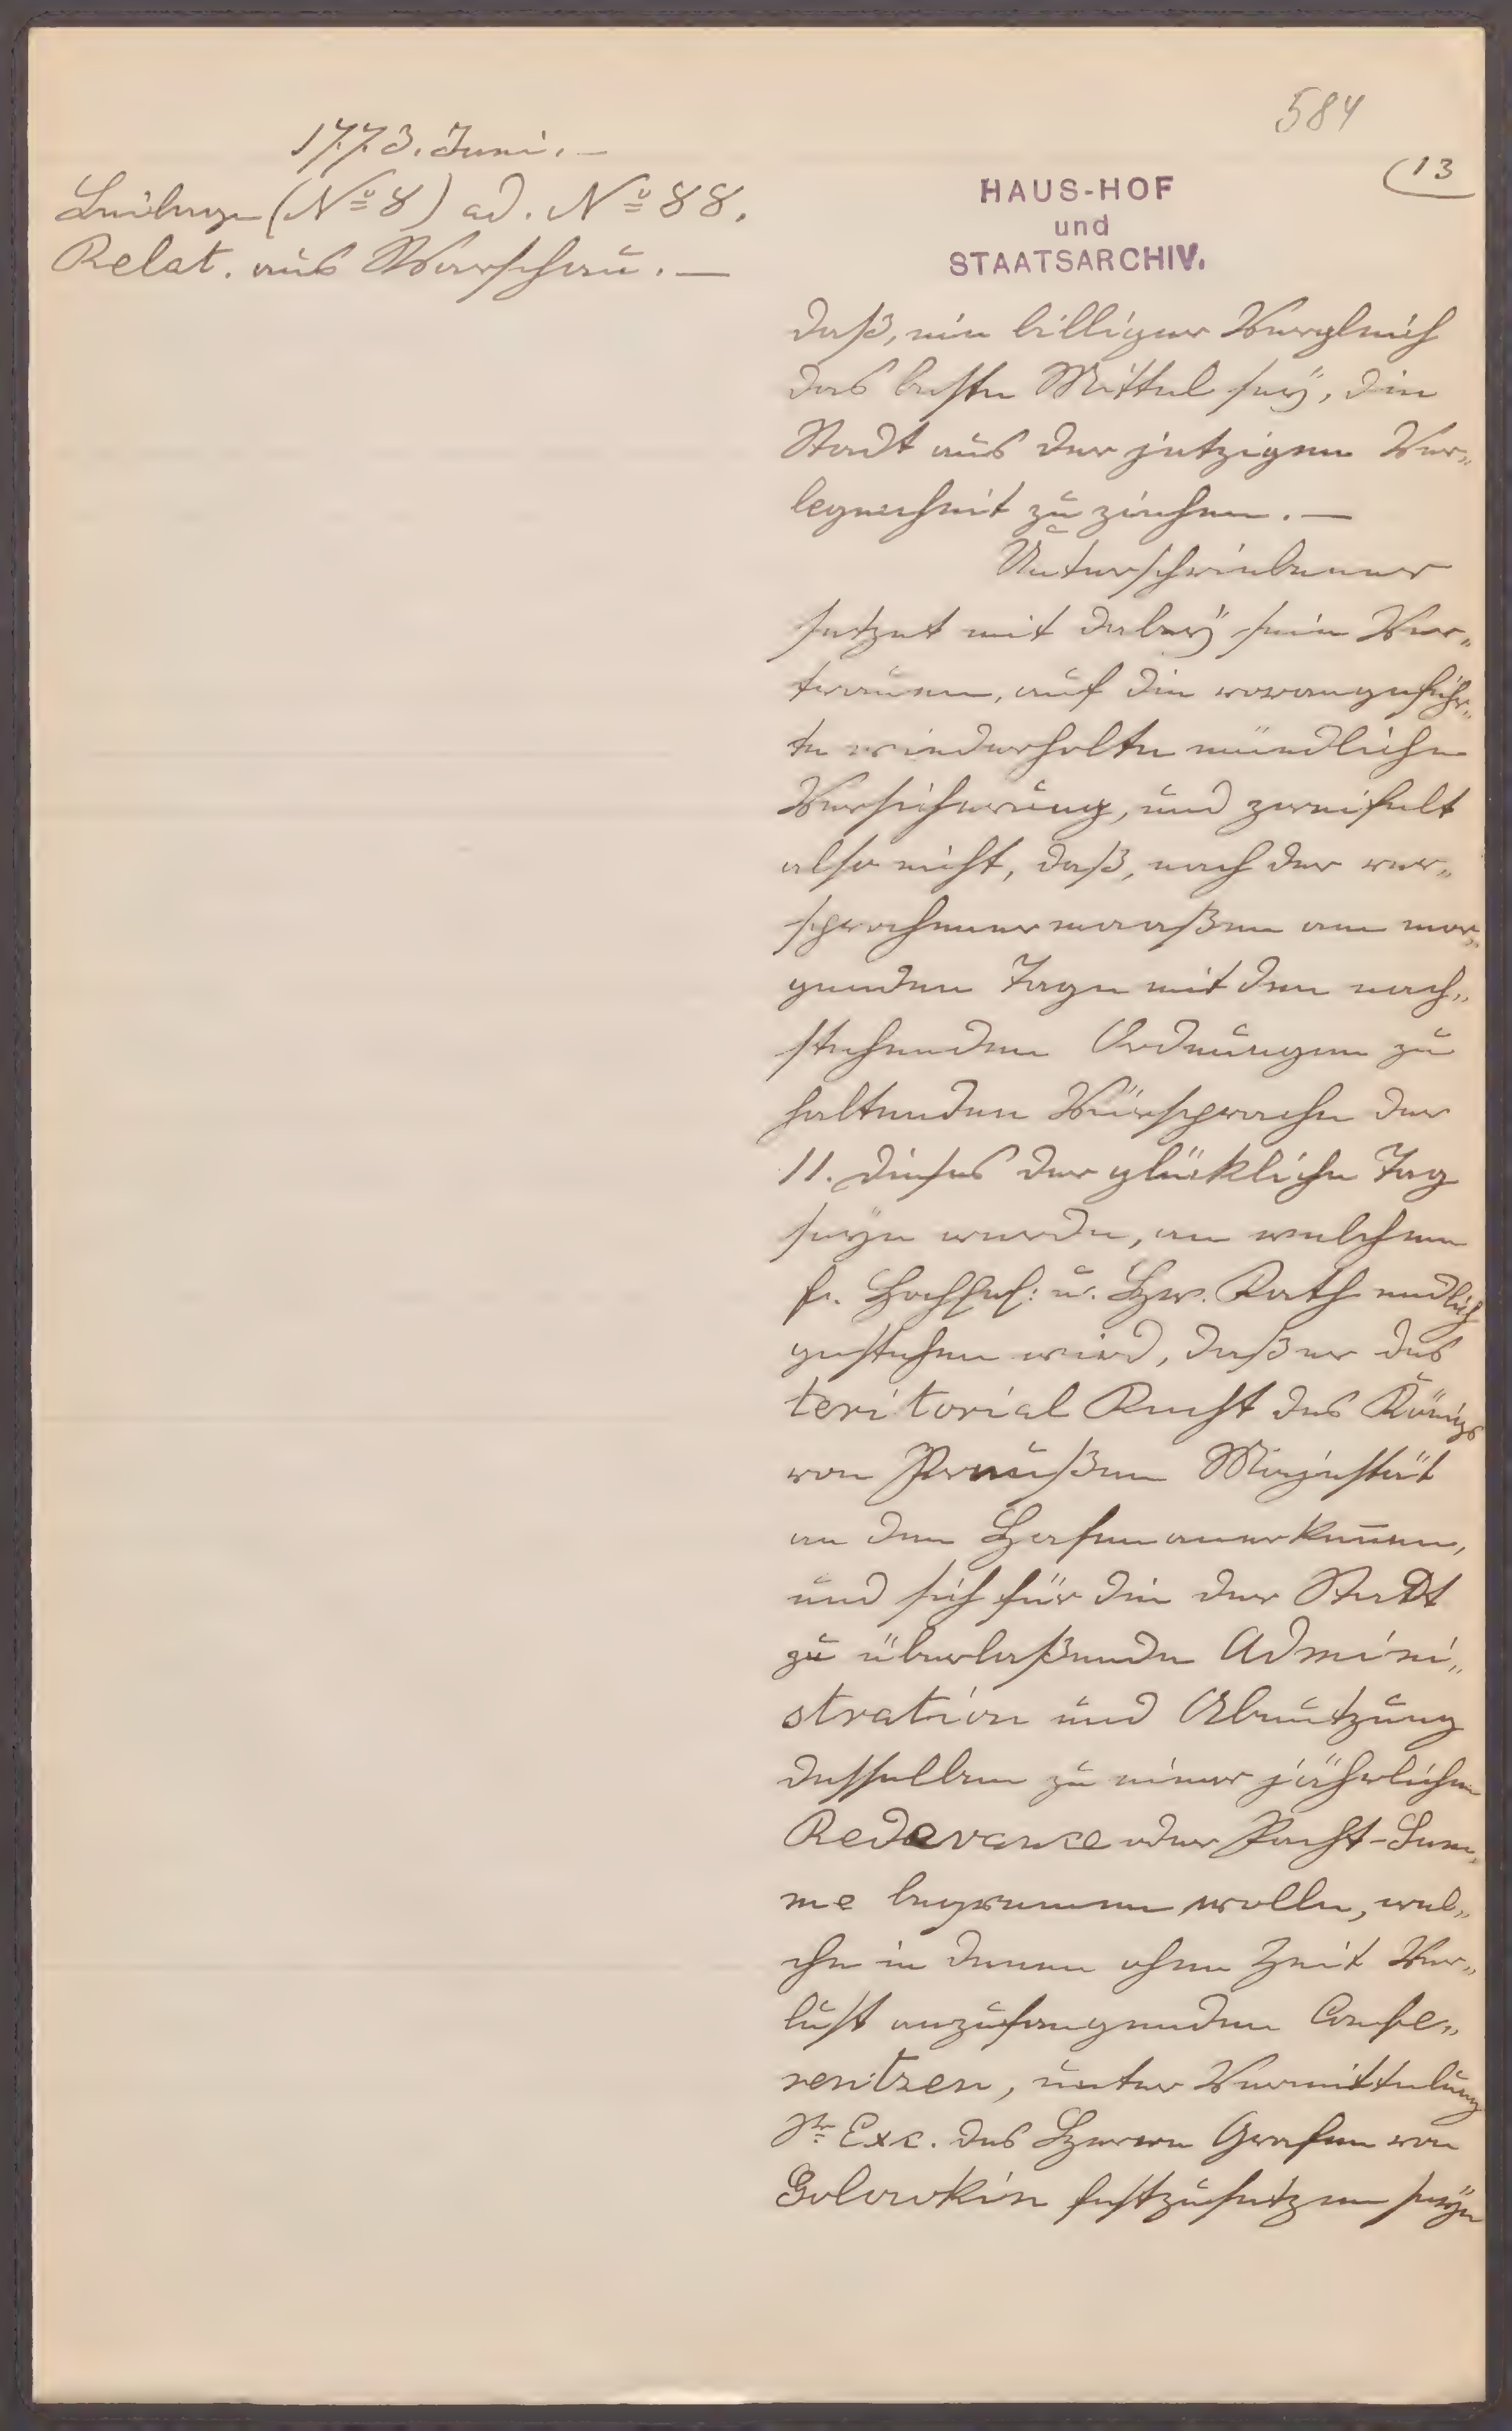 584
(13
1773. Juni. —
Beilage (No 8) ad. No 88.
Relat. aus Warschau. —
HAUS-HOF
und
STAATSARCHIV.
daß, ein billiger Vergleich
das beste Mittel seÿ, die
Stadt aus der jetzigen Ver„
legenheit zu ziehen. —
Unterschriebener
setzet mit dabeÿ sein Ver„
trauen, auf die vorangeführ„
te wiederholte mündliche
Versicherung, und zweifelt
also nicht, daß, nach der ver„
sprochenermaaßen am mor„
genden Tage mit den nach„
stehenden Ordnungen zu
haltenden Vürsprache der
11. dieses der glückliche Tag
seÿn werde, an welchem
E. Hochedl: u. Hw. Rath endlich
gestehen wird, daß er das
teritorial Recht des Königs
von Preußen Majestät
an dem Hafen anerkennen,
und sich für die der Stadt
zu überlaßende Admini„
stration und Abnutzung
desselben zu einer jährlichen
Redevance oder Pacht-Sum„
me bequemen wolle, wel„
che in denen ohne Zeit Ver„
lust anzufangenden Confe„
rentzen, unter Vermittelung
Sr Exc. des Herrn Grafen von
Golowkin festzusetzen seÿn